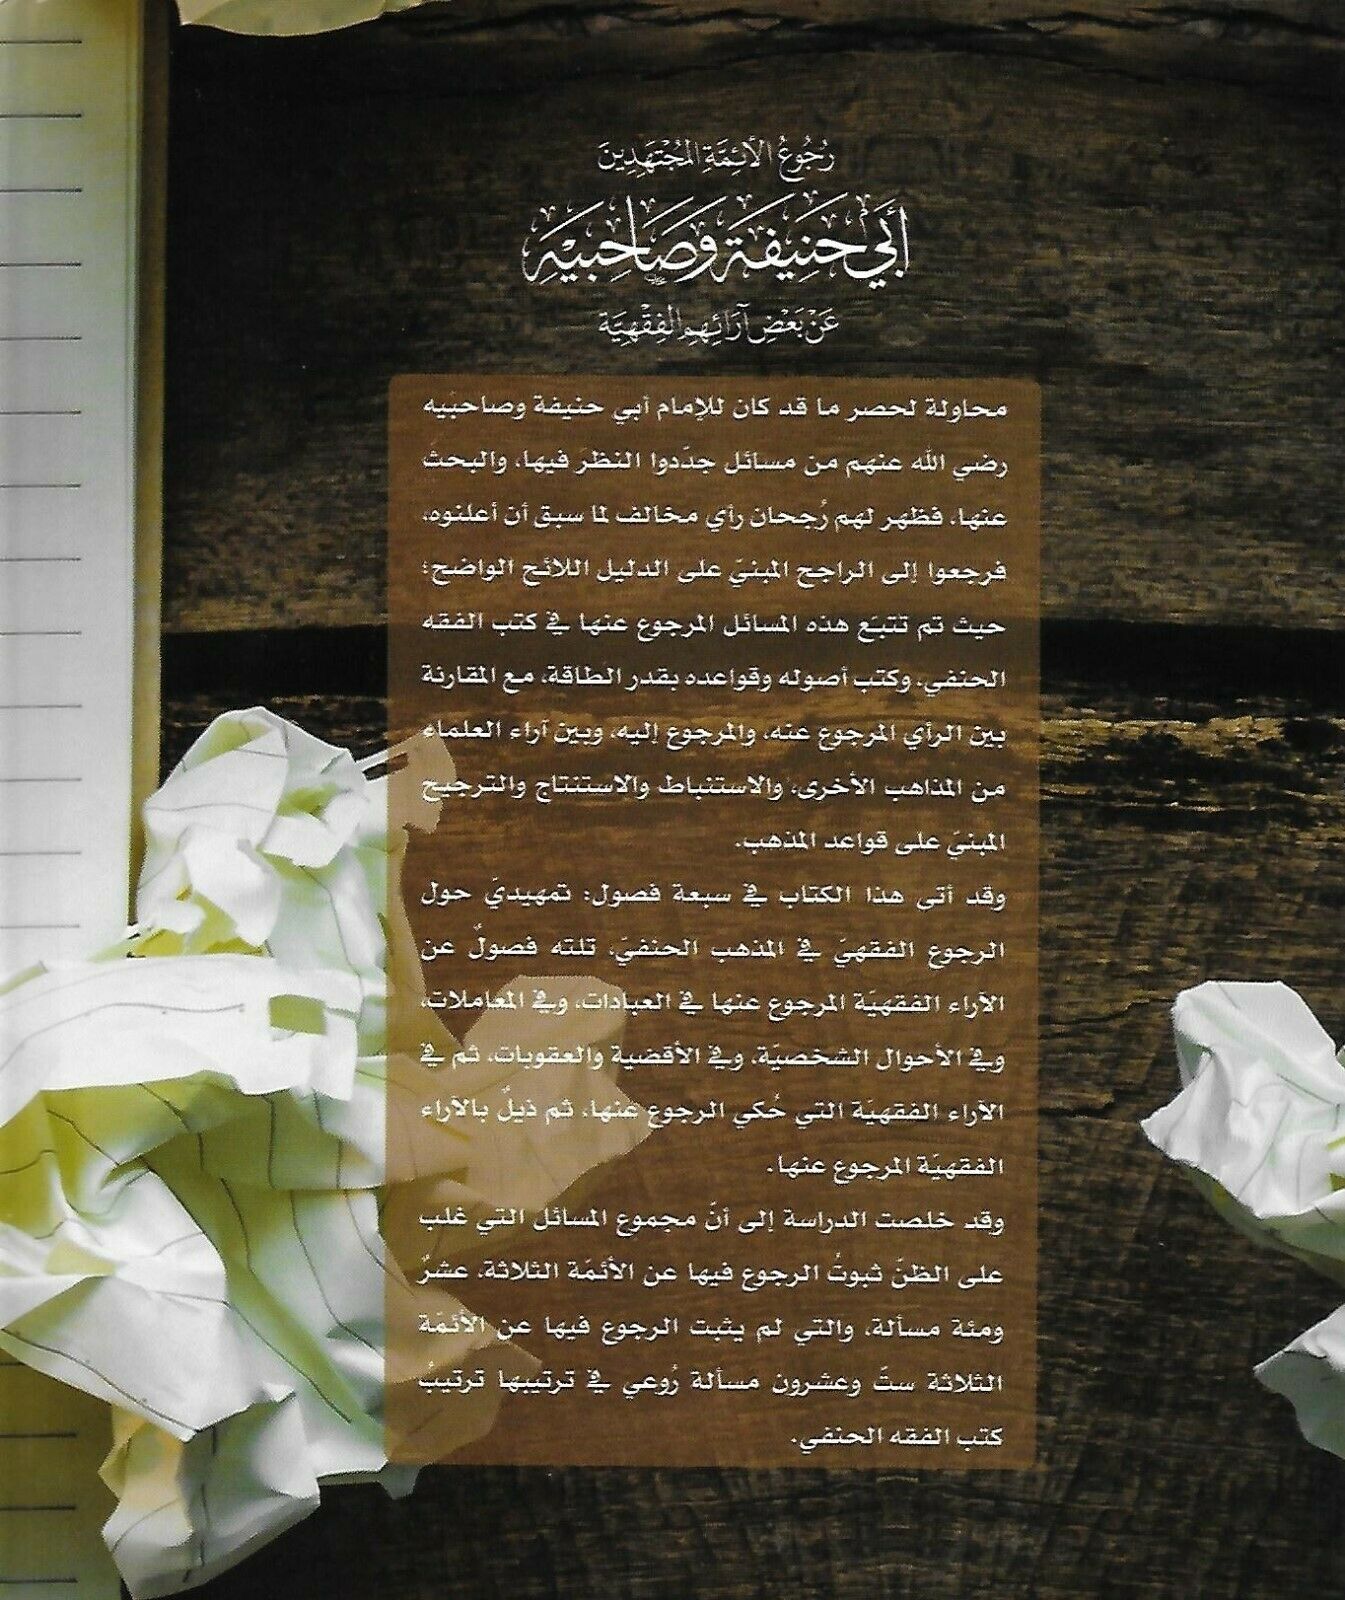 رُجُوعُ الأَئِمَّةِ المُجْتَهِدِينَ
أَبِي حَنِيفَةَ وَصَاحِبَيْهِ
عَنْ بَعْضِ آرَائِهِم الفِقْهِيَّة
محاولة لحصر ما قد كان للإمام أبي حنيفة وصاحبَيه
رضي الله عنهم من مسائل جدّدوا النظرَ فيها، والبحثَ
عنها، فظهر لهم رُجحان رأي مخالف لما سبق أن أعلنوه،
فرجعوا إلى الراجح المبنيّ على الدليل اللائح الواضح؛
حيث تم تتبّع هذه المسائل المرجوع عنها في كتب الفقه
الحنفي، وكتب أصوله وقواعده بقدر الطاقة، مع المقارنة
بين الرأي المرجوع عنه، والمرجوع إليه، وبين آراء العلماء
من المذاهب الأخرى، والاستنباط والاستنتاج والترجيح
المبنيّ على قواعد المذهب.
وقد أتى هذا الكتاب في سبعة فصول: تمهيديّ حول
الرجوع الفقهيّ في المذهب الحنفيّ، تلته فصولٌ عن
الآراء الفقهيّة المرجوع عنها في العبادات، وفي المعاملات،
وفي الأحوال الشخصيّة، وفي الأقضية والعقوبات، ثم في
الآراء الفقهيّة التي حُكي الرجوع عنها، ثم ذيلٌ بالآراء
الفقهيّة المرجوع عنها.
وقد خلصت الدراسة إلى أنّ مجموع المسائل التي غلب
على الظنّ ثبوتُ الرجوع فيها عن الأئمّة الثلاثة، عشرٌ
ومئة مسألة، والتي لم يثبت الرجوع فيها عن الأئمّة
الثلاثة ستّ وعشرون مسألة رُوعي في ترتيبها ترتيبُ
كتب الفقه الحنفي.